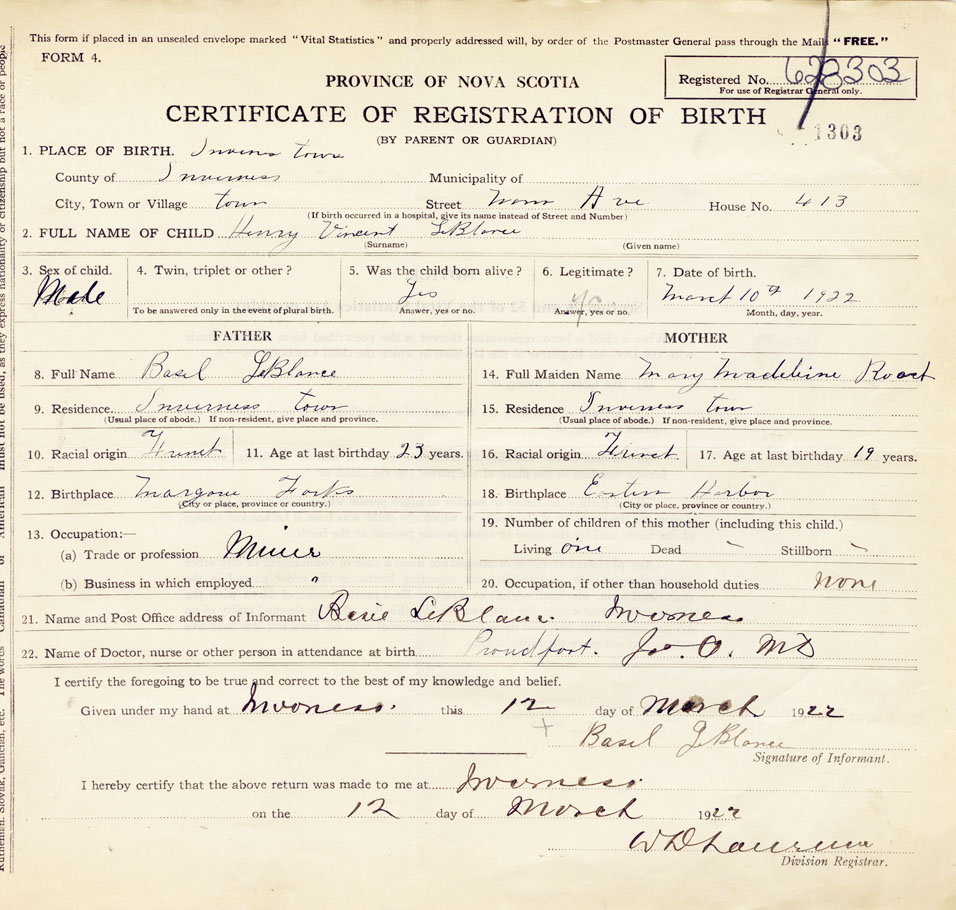 This form if placed in an unsealed envelope marked "Vital Statistics" and properly addressed will, by order of the Postmaster General pass through the Mails "FREE."
FORM 4.
PROVINCE OF NOVA SCOTIA
Registered No. 623303
For use of Registrar General only.
CERTIFICATE OF REGISTRATION OF BIRTH
1303
(BY PARENT OR GUARDIAN)
1. PLACE OF BIRTH. town
County of Inverness Municipality of
City, Town or Village town Street Ave House No. 413
(If birth occurred in a hospital, give its name instead of Street and Number)
2. FULL NAME OF CHILD Henry Vincent LeBlance
(Surname) (Given name)
3. Sex of child. 4. Twin, triplet or other? 5. Was the child born alive? 6. Legitimate? 7. Date of birth.
Male Yes yes March 10th 1922
To be answered only in the event of plural birth. Answer, yes or no. Answer, yes or no. Month, day, year.
FATHER MOTHER
8. Full Name Basil LeBlance 14. Full Maiden Name Mary Madeleine
9. Residence Inverness town 15. Residence Inverness town
(Usual place of abode.) If non-resident, give place and province. (Usual place of abode.) If non-resident, give place and province.
10. Racial origin 11. Age at last birthday 23 years. 16. Racial origin 17. Age at last birthday 19 years.
12. Birthplace Forks 18. Birthplace Harbor
(City or place, province or country.) (City or place, province or country.)
13. Occupation:— 19. Number of children of this mother (including this child.)
(a) Trade or profession Miner Living one Dead - Stillborn -
(b) Business in which employed " 20. Occupation, if other than household duties none
21. Name and Post Office address of Informant Inverness
22. Name of Doctor, nurse or other person in attendance at birth Proudfoot. Jno. O. MD
I certify the foregoing to be true and correct to the best of my knowledge and belief.
Given under my hand at Inverness. this 12 day of March 1922
+ Basil LeBlance
Signature of Informant.
I hereby certify that the above return was made to me at Inverness.
on the 12 day of March 1922
W D
Division Registrar.